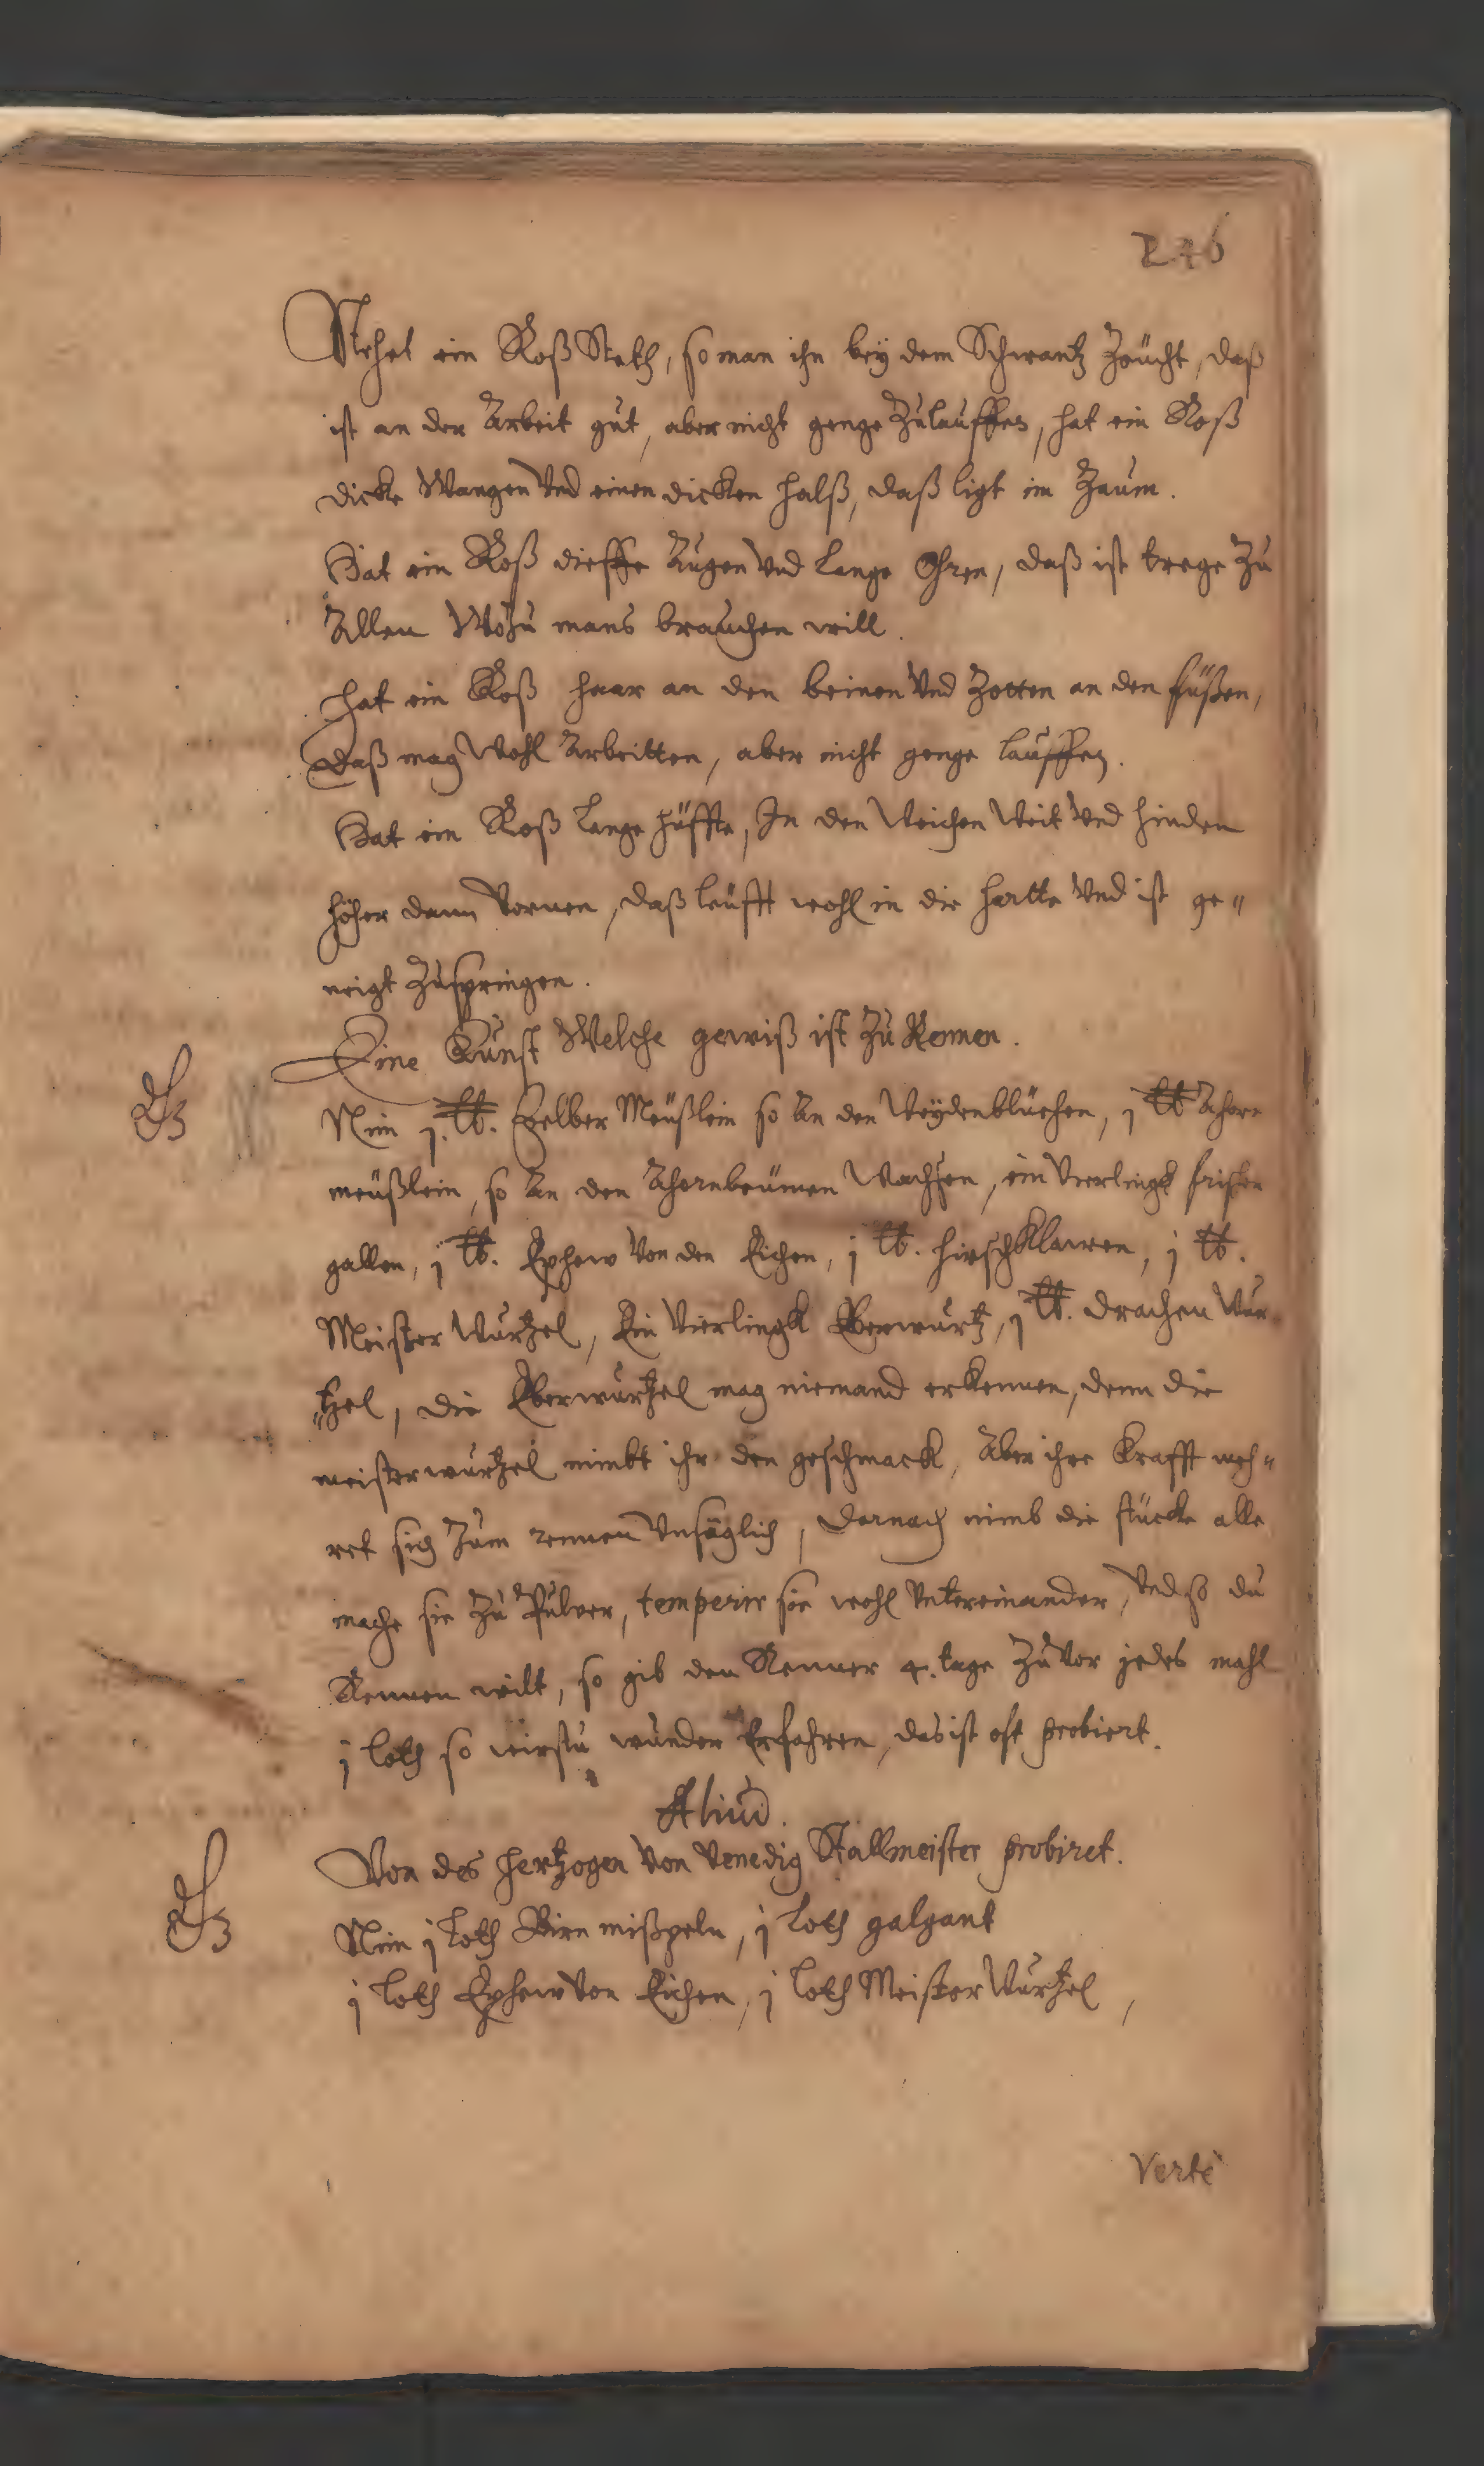 246
Stehet ein Roß Steth, so man ihn bey dem Schwantz Zeücht, daß
ist an der Arbeit gut, aber nicht genge Zulauffen, hat ein Roß
dicke Wangen Vnd einen dicken halß, daß ligt im Zaum.
Hat ein Roß dieffe Augen Vnd lange Ohren, daß ist trege Zu
Allen Wozu mans brauchen will.
hat ein Roß haar an den beinen Vnd Zotten an den füßen,
Daß mag Wohl Arbeitten, aber nicht genge lauffen.
Hat ein Roß lange hüffte, In den Weichen Weit Vnd hinden
höher dann Vornen, daß leüfft wohl in die hartte Vnd ist ge"
neigt Zuspringen.
Eine Kunst Welche gewiß ist Zu Rennen.
Nim j. ℔. Gelber Meüßlein so An den Weydenblüehen, j ℔ Ahorn
meüßlein, so An den Ahornbeümen Wachsen, ein Vierlingk
gallen, j ℔. Ephew Von den Eichen, j ℔. hirschKlawen, j ℔.
Meister Wurtzel, Ein Vierlingk Eberwurtz, j ℔. Drachen Wur"
"tzel, die Eberwurtzel mag niemand erkennen, denn die
meisterwurtzel nimbt ihr den geschmack, Aber ihre Krafft meh"
ret sich Zum rennen Vnsäglich, Darnach nimb die stücke alle
mache sie Zu Pulver, temperir sie wohl Vntereinander, Vnd so du
Rennen wilt, so gib den Renner 4. tage ZuVor jedes mahl
j loth so wirstu wunder Erfahren, das ist oft probiert.
Aliud.
Von des Hertzogen Von Venedig Stallmeister probiret.
Nim j loth Birn mißpeln, j loth galgant
j loth Ephew Von Eichen, j loth Meister Wurtzel,
Verte